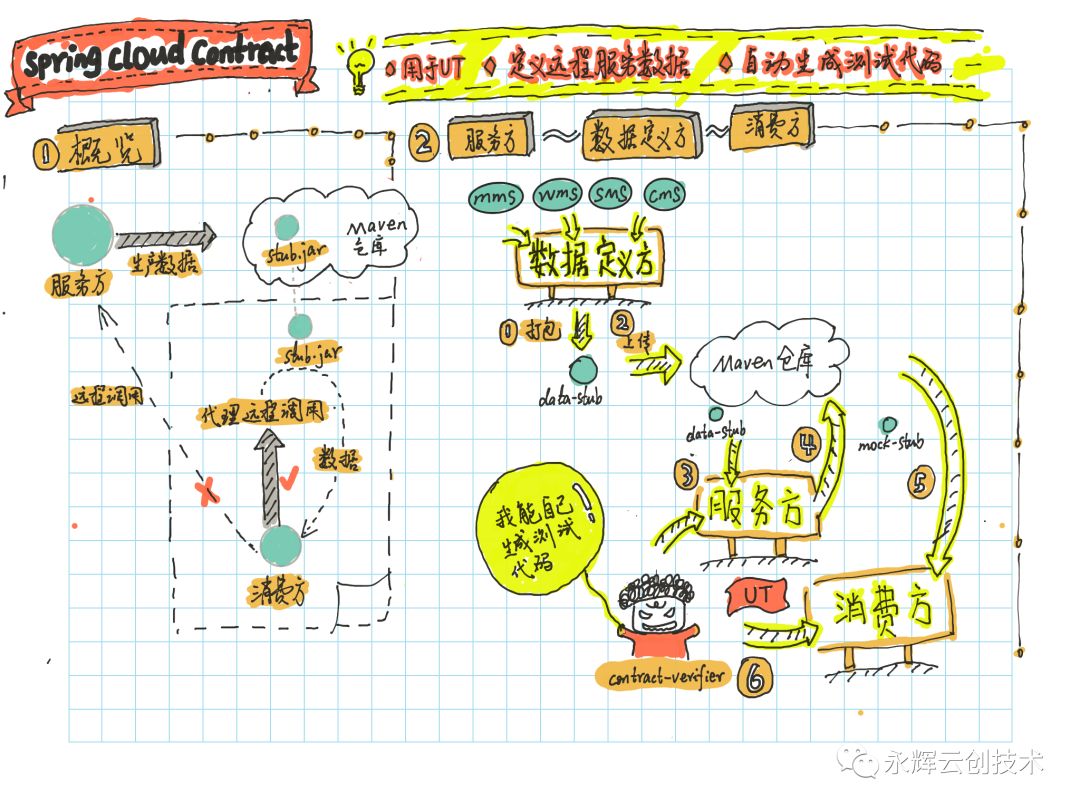 Spring Cloud Contract
用于UT
定义远程服务数据
自动生成测试代码
① 概览
生产数据
服务方
stub.jar
Maven
仓库
stub.jar
远程调用
代理远程调用
数据
消费方
② 服务方
数据定义方
消费方
mms
wms
sms
cms
数据定义方
① 打包
② 上传
data-stub
Maven仓库
data-stub
③
④
mock-stub
⑤
服务方
我能自己
生成测试
代码
!
UT
消费方
contract-verifier
⑥
永辉云创技术